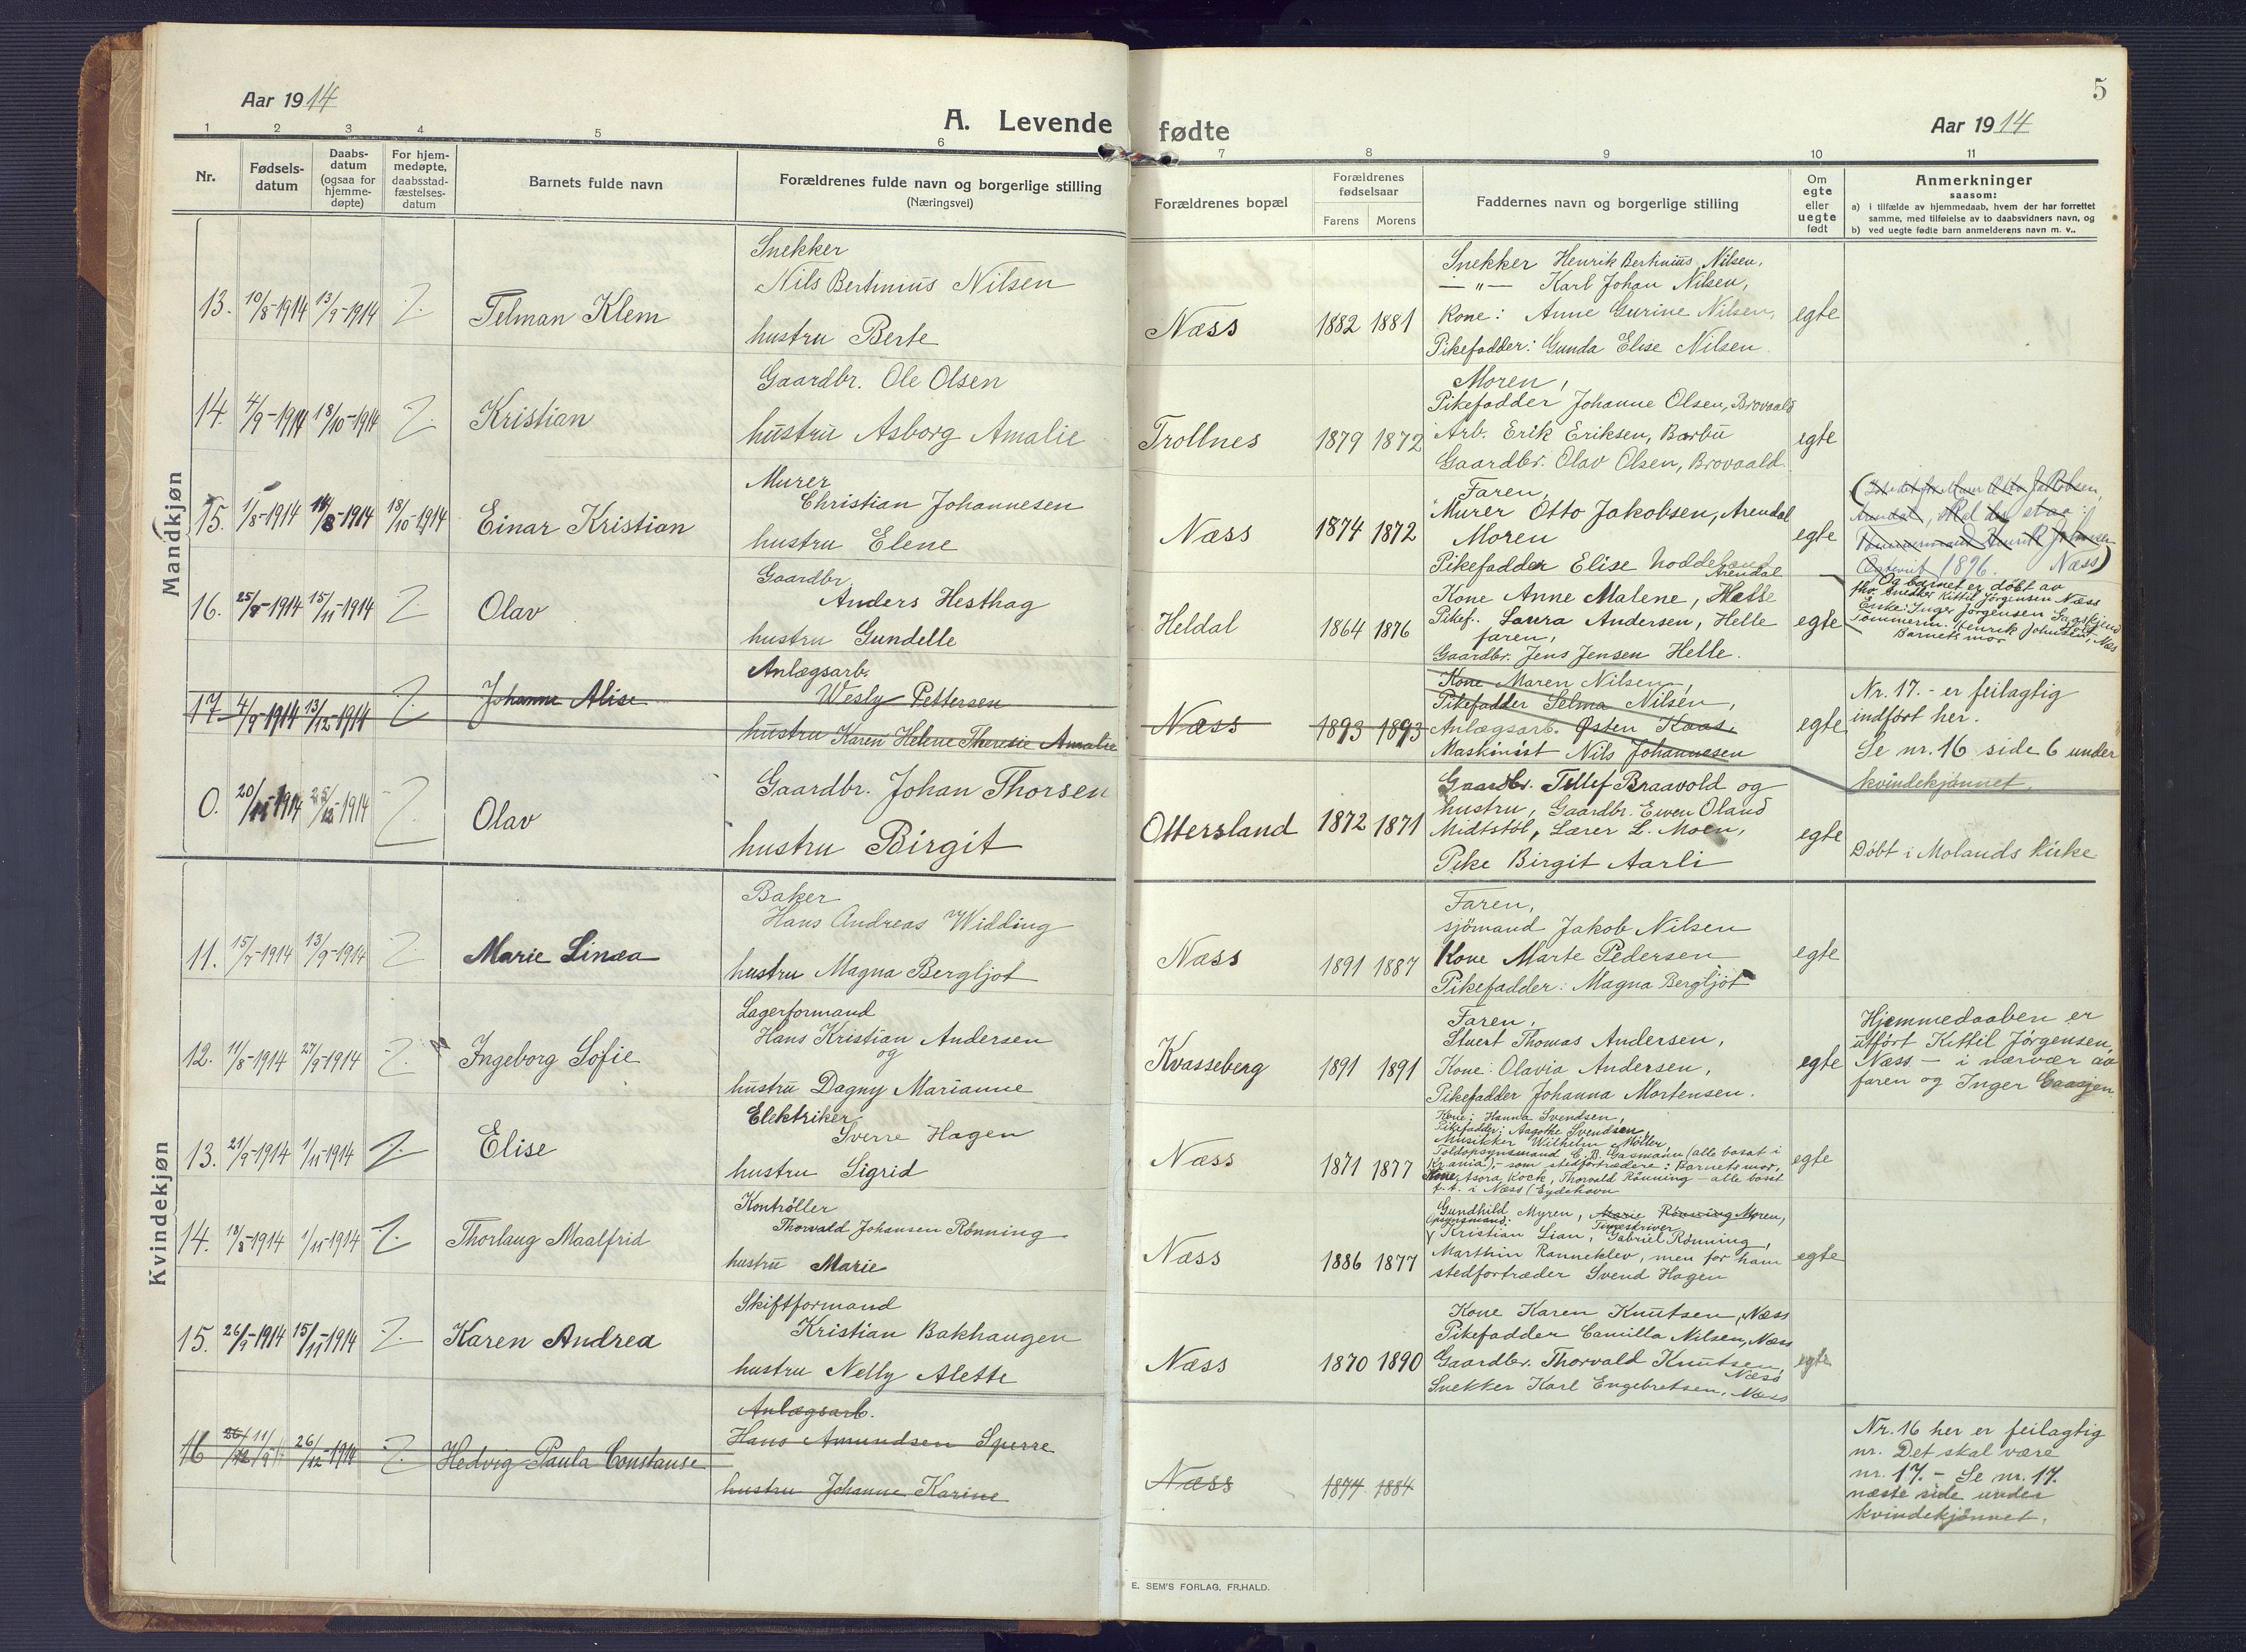 5
Aar 1914
A. Levende fødte
Aar 1914
1 2 3 4 5 6 7 8 9 10 11
Nr.
Fødsels-
datum
Daabs-
datum
(ogsaa for
hjemme-
døpte)
For hjem-
medøpte,
daabsstad-
fæstelses-
datum
Barnets fulde navn
Forældrenes fulde navn og borgerlige stilling
(Næringsvei)
Forældrenes bopæl
Forældrenes
fødselsaar
Farens Morens
Faddernes navn og borgerlige stilling
Om
egte
eller
uegte
født
Anmerkninger
saasom:
a) i tilfælde av hjemmedaab, hvem der har forrettet
samme, med tilføielse av to daabsvidners navn, og
b) ved uegte fødte barn anmelderens navn m. v..
Mandkjøn
13. 10/8-1914 13/9-1914 Telman Klem
Snekker
Nils Bertinius Nilsen
hustru Berte
Næss 1882 1881
Snekker Henrik Bertinius Nilsen,
— " — Karl Johan Nilsen,
Kone: Anne Gurine Nilsen,
Pikefadder: Gunda Elise Nilsen
egte
14. 4/9-1914 18/10-1914 Kristian
Gaardbr. Ole Olsen
hustru Asborg Amalie
Trollnes 1879 1872
Moren,
Pikefadder Johanne Olsen, Brovaald
Arb. Erik Eriksen, Barbu
Gaardbr. Olav Olsen, Brovaald.
egte
15. 1/8-1914 14/8-1914 18/10-1914 Einar Kristian
Murer
Christian Johannesen
hustru Elene
Næss 1874 1872
Faren,
Murer Otto Jakobsen, Arendal
Moren
Pikefadder Elise Noddeland
Arendal
egte
Arendal, skal der staa:
Tømmermand Henrik Johnsen
1896. Næss)
Og barnet er døbt av
fhv. Snedker Kittil Jörgensen Næss
Enke: Inger Jörgensen
Tømmerm. Henrik Johnsen, Næs
Barnets mor
16. 25/8-1914 15/11-1914 Olav
Gaardbr.
Anders Hesthag
hustru Gundelle
Heldal 1864 1876
Kone Anne Malene, Helle
Pikef. Laura Andersen, Helle
faren,
Gaardbr. Jens Jensen Helle.
egte
17 4/9-1914 13/12-1914 Johanne Alise
Anlægsarb.
Wesly Pettersen
hustru Karen Helene Theresie Amalie
Næss 1893 1893
Kone Maren Nilsen,
Pikefadder Selma Nilsen,
Anlægsarb. Østen Kaas.
Maskinist Nils Johannesen
egte
Nr. 17. - er feilagtig
indført her.
Se nr. 16 side 6 under
kvindekjønnet.
0. 20/11-1914 25/12-1914 Olav
Gaardbr. Johan Thorsen
hustru Birgit
Ottersland 1872 1871
Gaardbr. Tellef Braavold og
hustru, Gaardbr. Even Oland
Midtstøl, Lærer L. Moen,
Pike Birgit Aarli
egte
Døbt i Molands kirke
Kvindekjøn
11. 15/7-1914 13/9-1914 Marie Linea
Baker
Hans Andreas Widding
hustru Magna Bergljot
Næss 1891 1887
Faren,
sjömand Jakob Nilsen
Kone Marte Pedersen
Pikefadder: Magna Bergljot
egte
12. 11/8-1914 27/9-1914 Ingeborg Sofie
Lagerformand
Hans Kristian Andersen
og
hustru Dagny Marianne
Kvasseberg 1891 1891
Faren,
Stuert Thomas Andersen,
Kone: Olavia Andersen,
Pikefadder Johanna Mortensen.
egte
Hjemmedaaben er
utført Kittil Jørgensen,
Næss - i nærvær av
faren og Inger
13. 21/9-1914 1/11-1914 Elise
Elektriker
Sverre Hagen
hustru Sigrid
Næss 1871 1877
Kone: Hanna Svendsen,
Pikefadder: Aagothe Svendsen,
Musikker Wilhelm Möller,
Toldopsynsmand C. B. Gasmann (alle bosat i
Kr.ania), - som stedfortrædere: Barnets mor,
Kone Asora Kock, Thorvald Rönning - alle bosat
f. t. i Næss (Eydehavn
egte
14. 18/8-1914 1/11-1914 Thorlaug Maalfrid
Kontrøller
Thorvald Johansen Rønning
hustru Marie
Næss 1886 1877
Gundhild Myren, Marie Rønning Moren,
Opsynsmand: Timeskriver
Kristian Lian, Gabriel Rønning,
Marthin Ranneklev, men for ham
stedfortræder Svend Hagen
egte
15. 26/9-1914 15/11-1914 Karen Andrea
Skiftformand
Kristian Bakhaugen
hustru Nelly Alette
Næss 1870 1890
Kone Karen Knutsen, Næss
Pikefadder Camilla Nilsen, Næss
Gaardbr. Thorvald Knutsen,
Næss
Snekker Karl Engebretsen, Næss
egte
16 26/12 11/9 26/12-1914 Hedvig Paula Constanse
Anlægsarb.
Hans Amundsen Sperre
hustru Johanne Karine
Næss 1874 1884
Nr. 16 her er feilagtig
nr. Det skal være
nr. 17. - Se nr. 17.
næste side under
kvindekjønnet.
E. SEM'S FORLAG, FR.HALD.